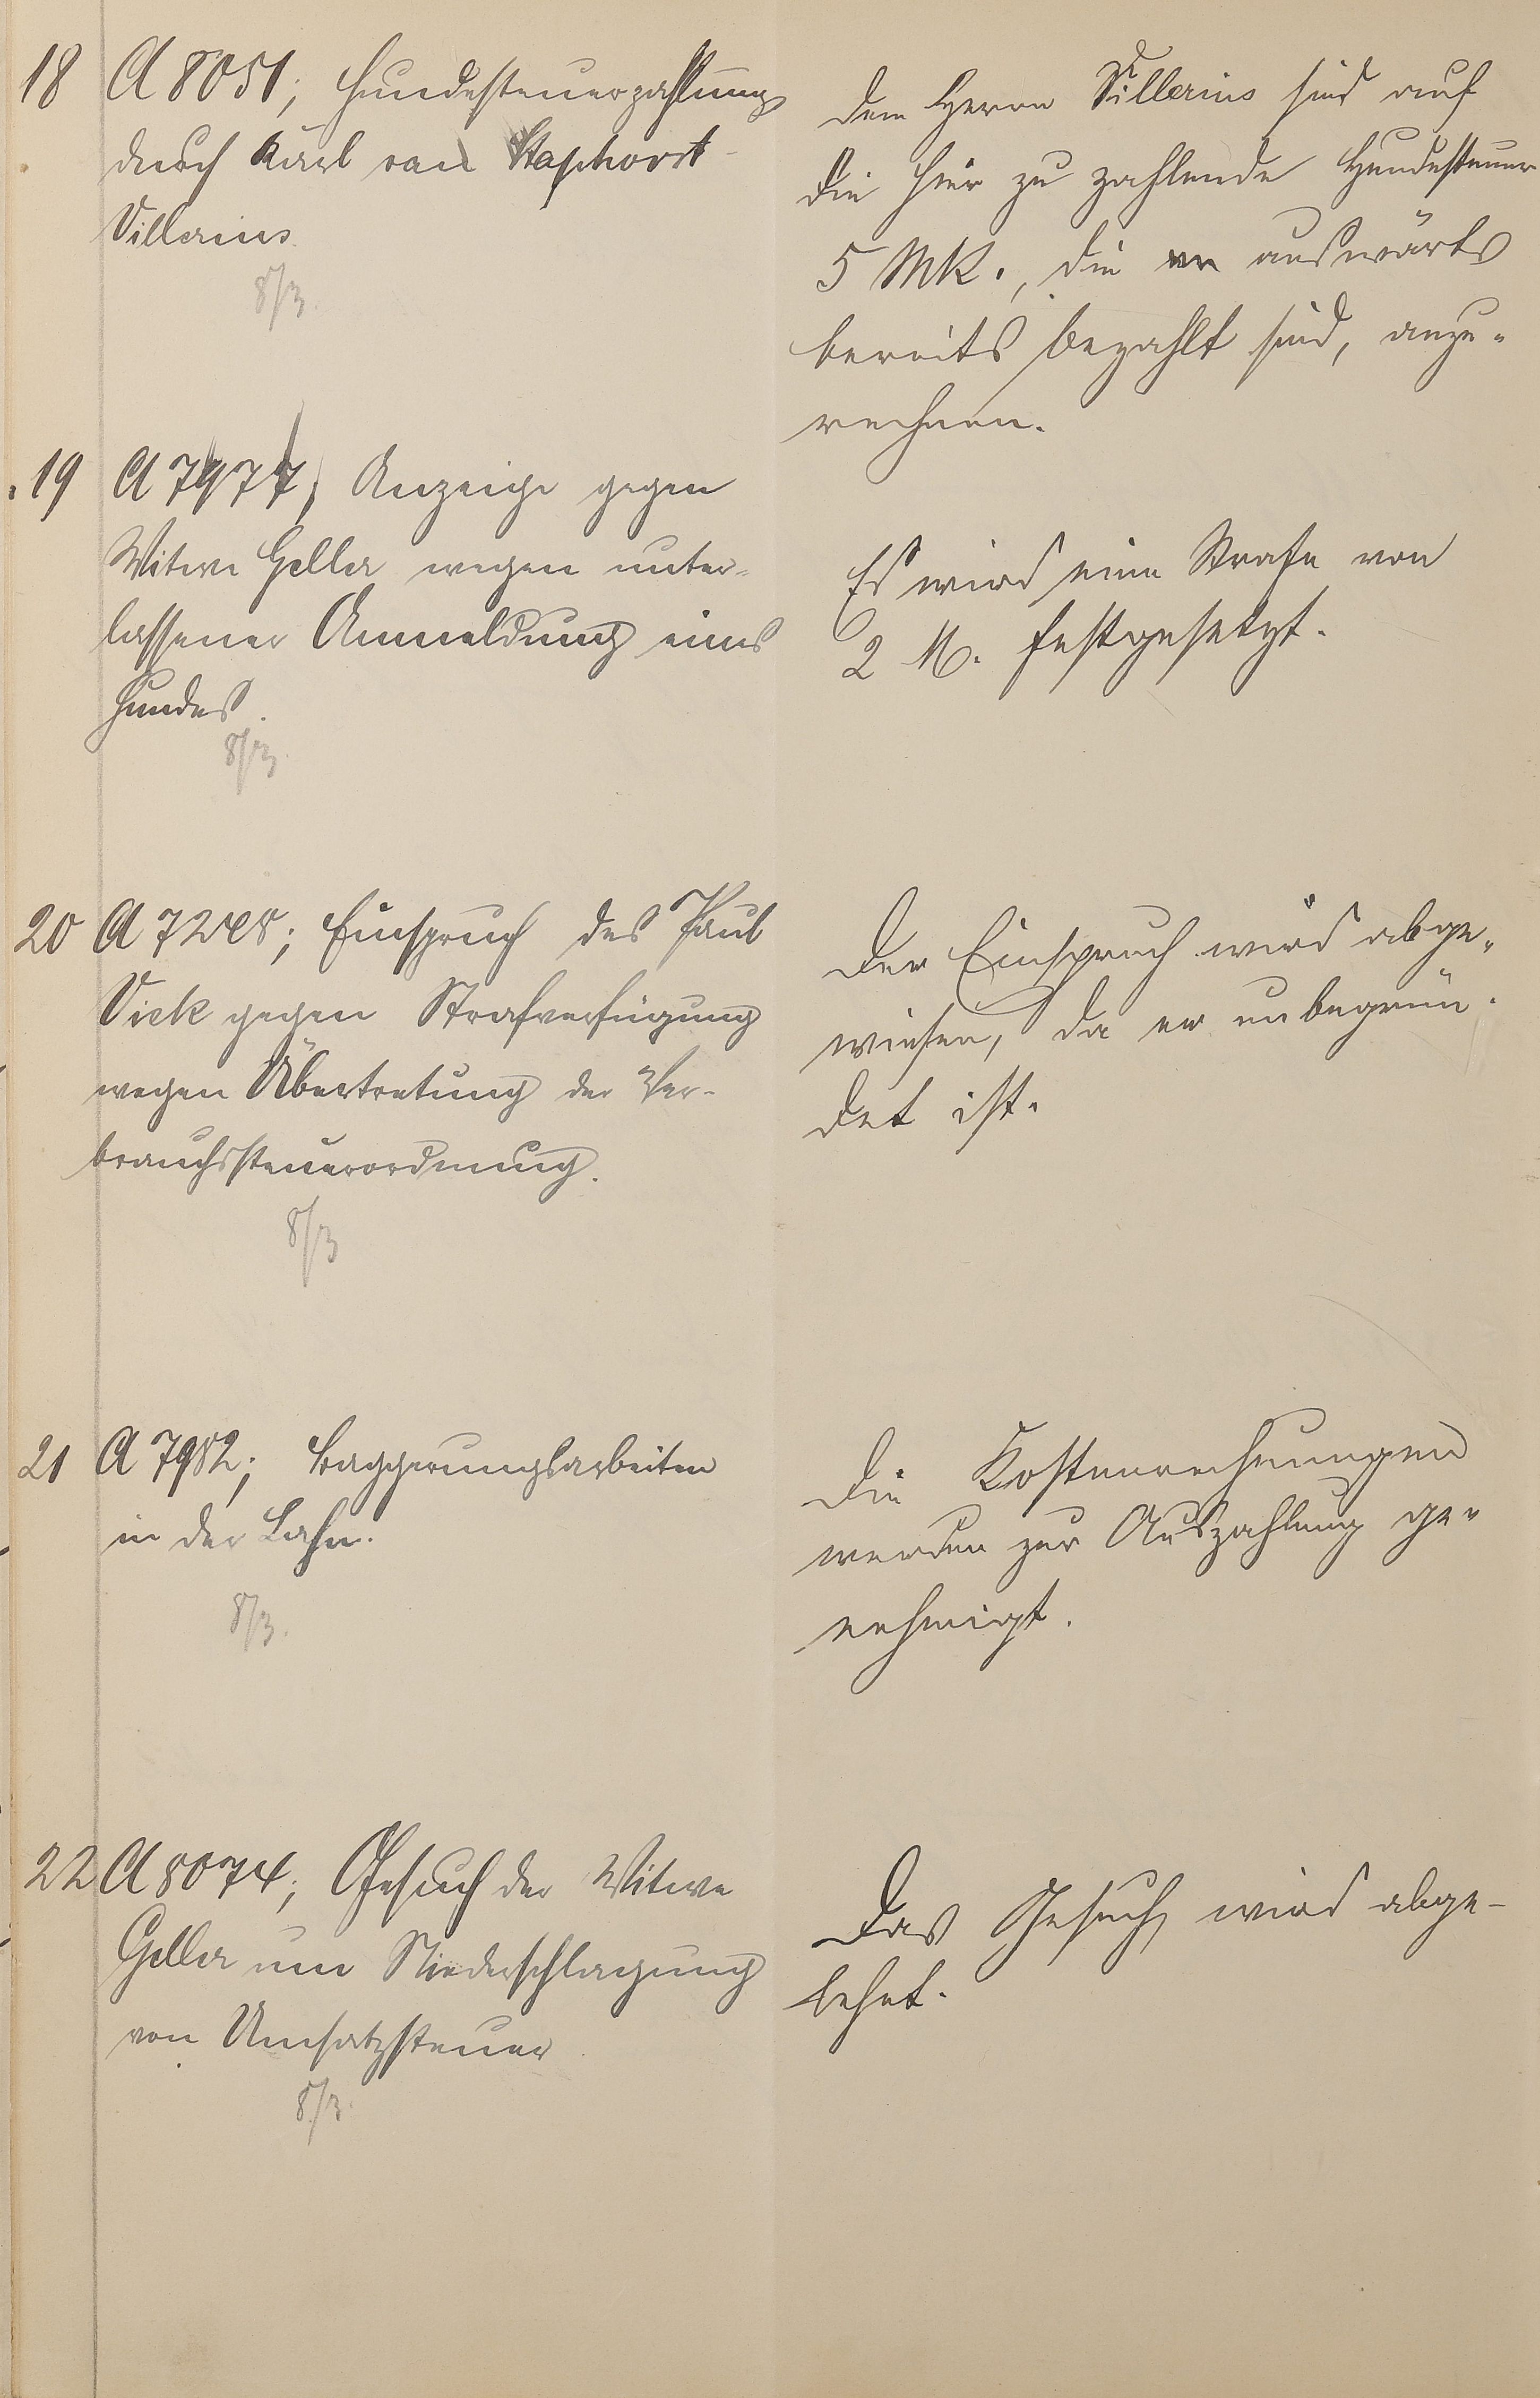 18 A 8051; Hundesteuerzahlung
durch Karl van Staphorst-
Villerius
8/3.
Dem Herrn Villerius sind auf
die hier zu zahlende Hundesteuer
5 MK., die er auswärts
bereits bezahlt sind, anzu-
rechnen.
19 A 7977; Anzeige gegen
Witwe Geller wegen unter-
lassener Anmeldung eines
Hundes.
8/3.
Es wird eine Strafe von
2 M. festgesetzt.
20 A Einspruch des Paul
Vick gegen Strafverfügung
wegen Übertretung der Ver-
brauchssteuerordnung.
8/3
Der Einspruch wird abge-
wiesen, da er unbegrün-
det ist.
21 A 7982; Baggerungsarbeiten
in der Lahn.
8/3.
Die Kostenrechnungen
werden zur Auszahlung ge-
nehmigt.
22 A 8074; Gesuch der Witwe
Geller um Niederschlagung
von Umsatzsteuer
8/3.
Das Gesuch wird abge-
lehnt.